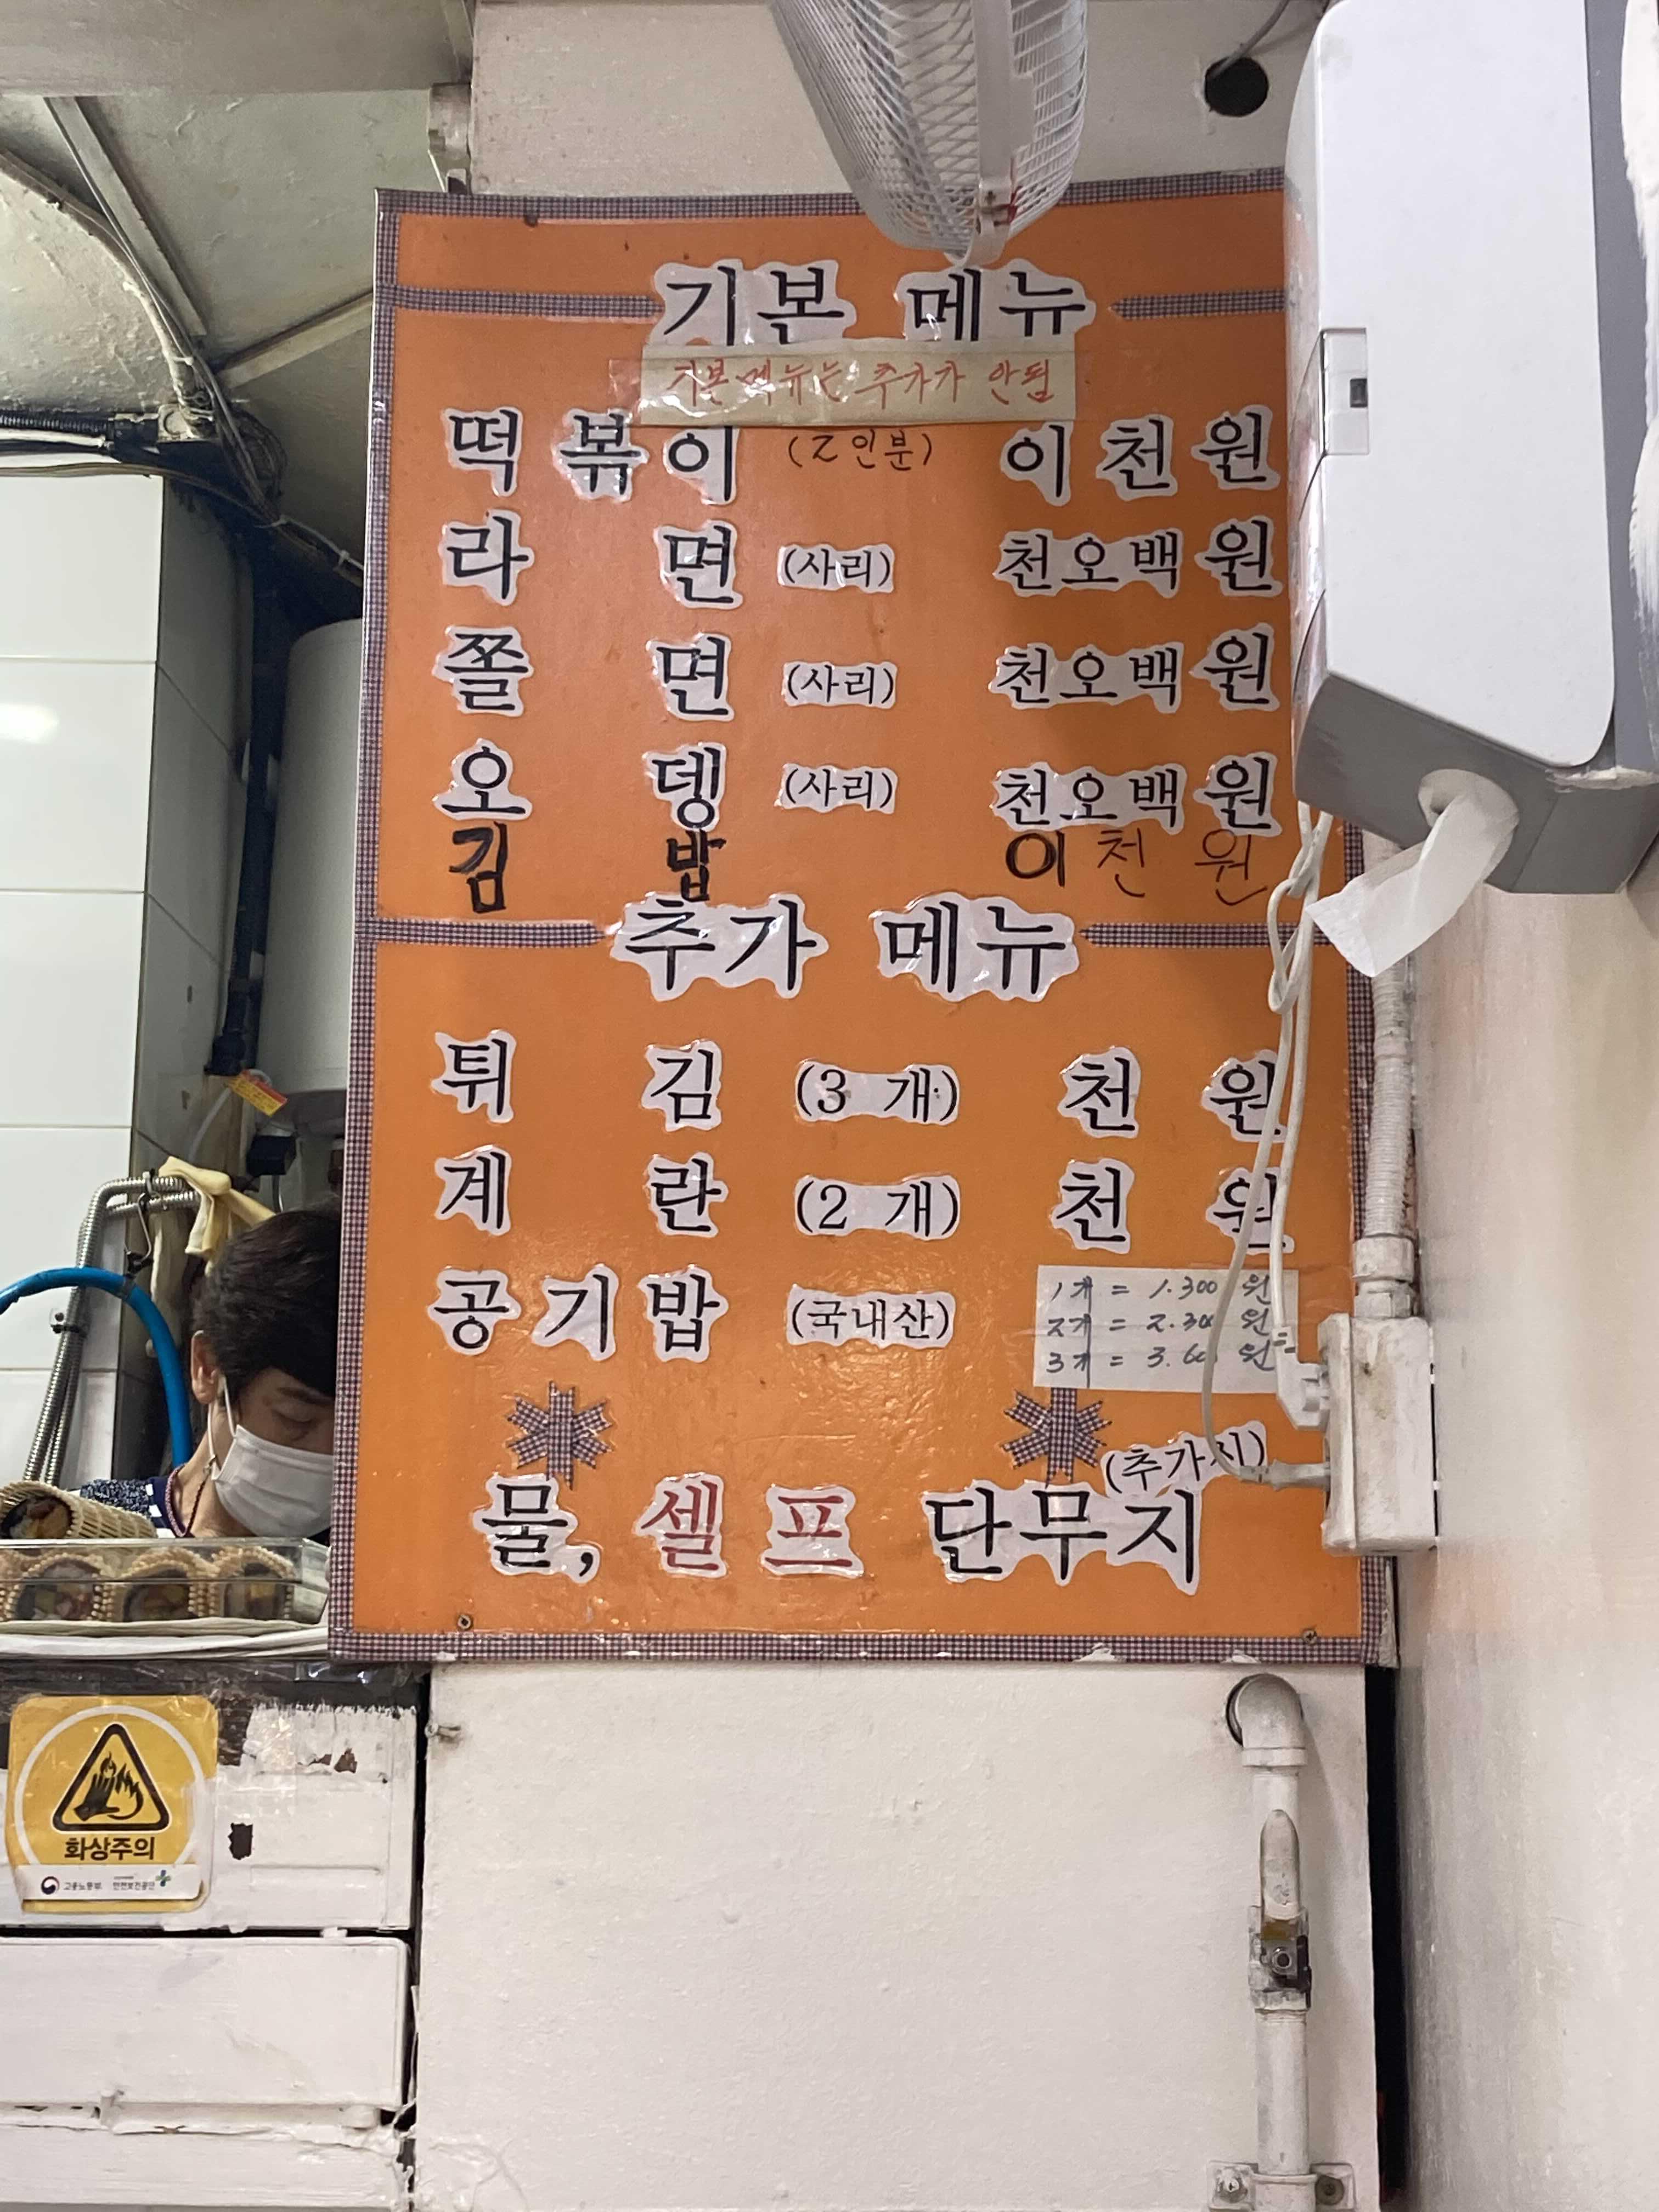 기본 메뉴
기본메뉴는 추가가 안됩
떡볶이 (2인분) 이천원
라면 (사리) 천오백원
쫄면 (사리) 천오백원
오뎅 (사리) 천오백원
김밥 이천원
추가 메뉴
튀김 (3 개) 천원
계란 (2 개) 천원
공기밥 (국내산)
1개 = 1.300 원
2개 = 2.300 원
3개 = 3.60 원
(추가시)
물, 셀프 단무지
화상주의
고용노동부 안전보건공단